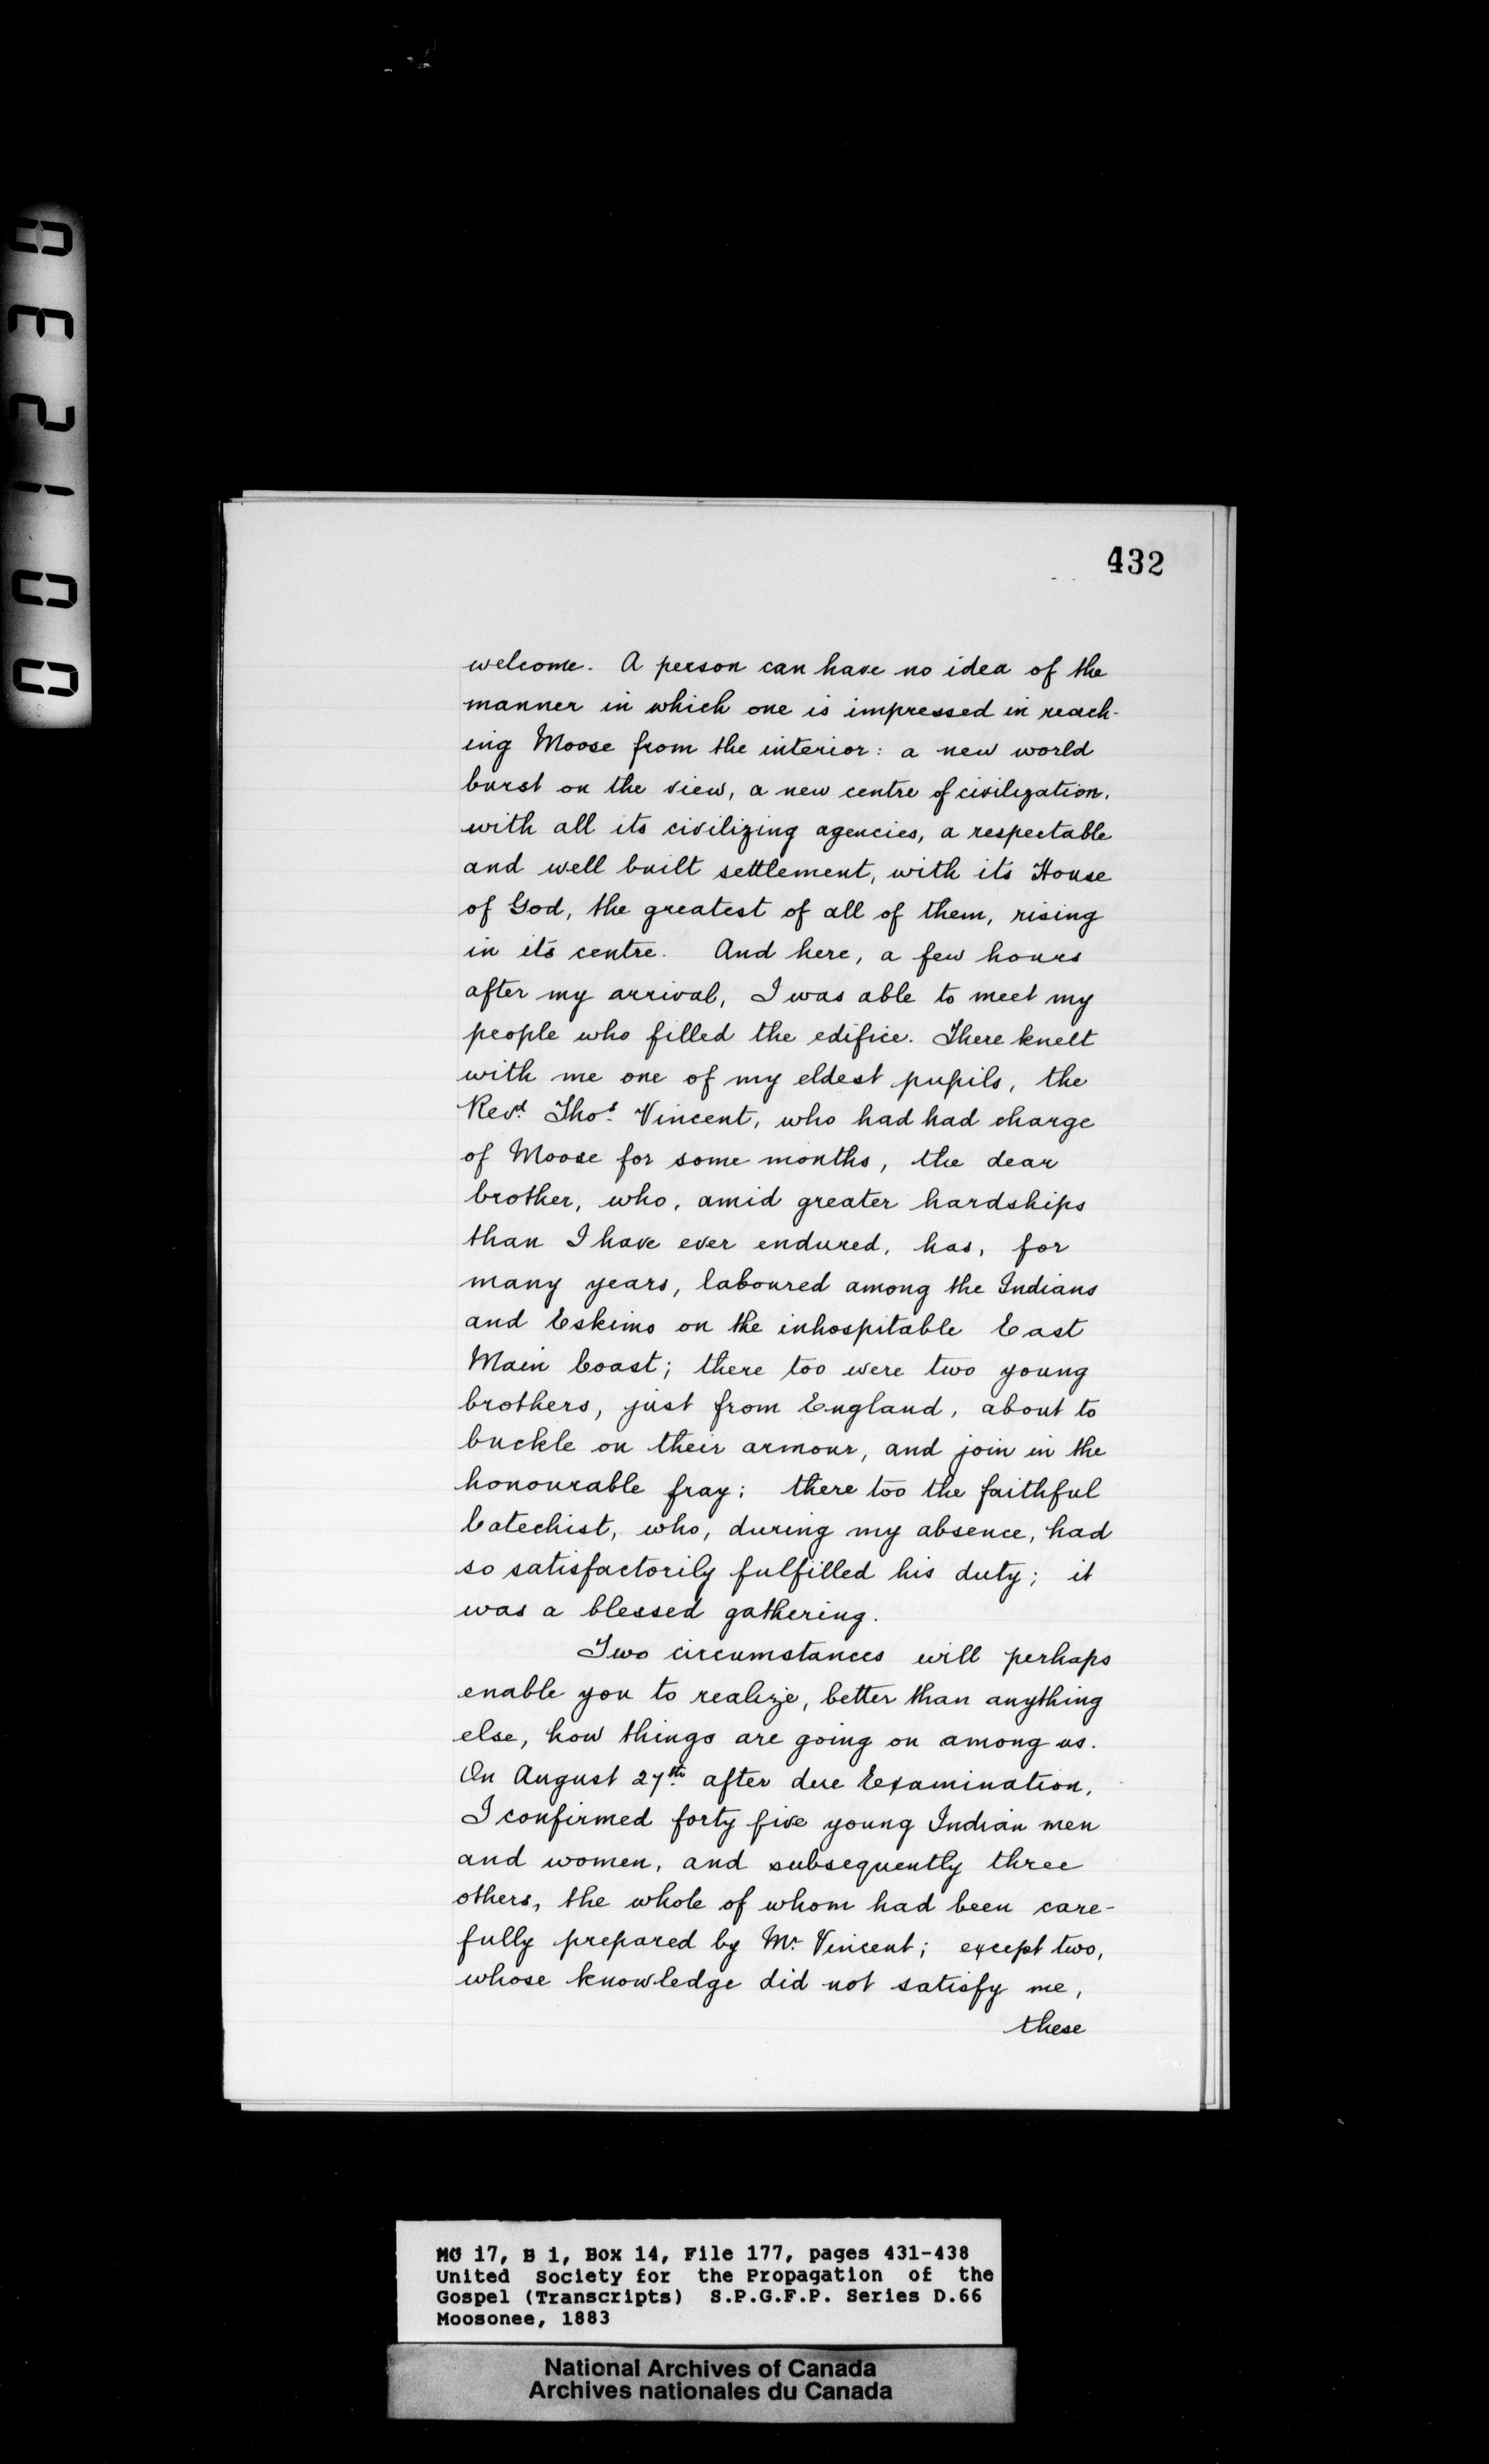 432
welcome. A person can have no idea of the
manner in which one is impressed in reach-
ing Moose from the interior: a new world
burst on the view, a new centre of civilization,
with all its civilizing agencies, a respectable
and well built settlement, with its House
of God, the greatest of all of them, rising
in its centre. And here, a few hours
after my arrival, I was able to meet my
people who filled the edifice. There knelt
with me one of my eldest pupils, the
Revd. Thos. Vincent, who had had charge
of Moose for some months, the dear
brother, who, amid greater hardships
than I have ever endured, has, for
many years, laboured among the Indians
and Eskimo on the inhospitable East
Main Coast; there too were two young
brothers, just from England, about to
buckle on their armour, and join in the
honourable fray; there too the faithful
Catechist, who, during my absence, had
so satisfactorily fulfilled his duty; it
was a blessed gathering.
Two circumstances will perhaps
enable you to realize, better than anything
else, how things are going on among us.
On August 27th after due Examination,
I confirmed forty five young Indian men
and women, and subsequently three
others, the whole of whom had been care-
fully prepared by Mr Vincent; except two,
whose knowledge did not satisfy me,
these
MG 17, B 1, Box 14, File 177, pages 431-438
United Society for the Propagation of the
Gospel (Transcripts) S.P.G.F.P. Series D.66
Moosonee, 1883
National Archives of Canada
Archives nationales du Canada